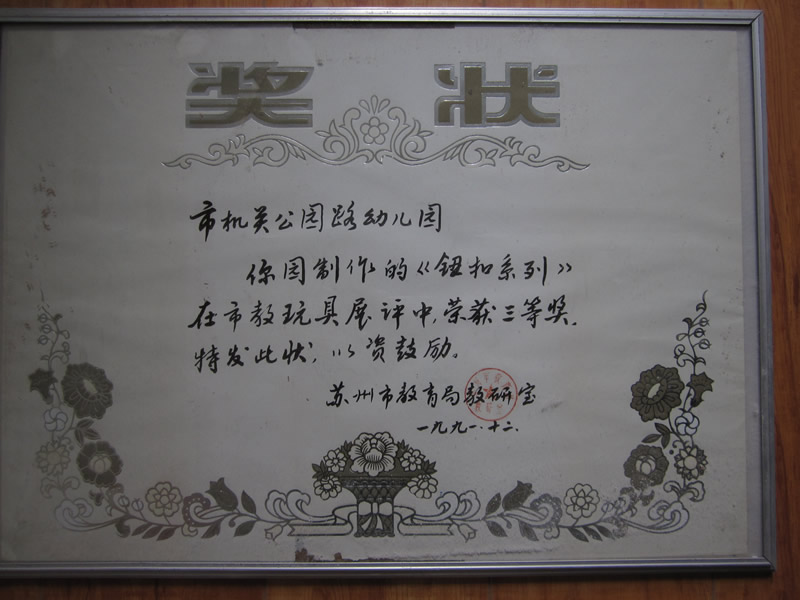 奖状
市机关公园路幼儿园
你园制作的《钮扣系列》
在市教玩具展评中,荣获三等奖.
特发此状,以资鼓励。
苏州市教育局教研室
一九九一.十二.